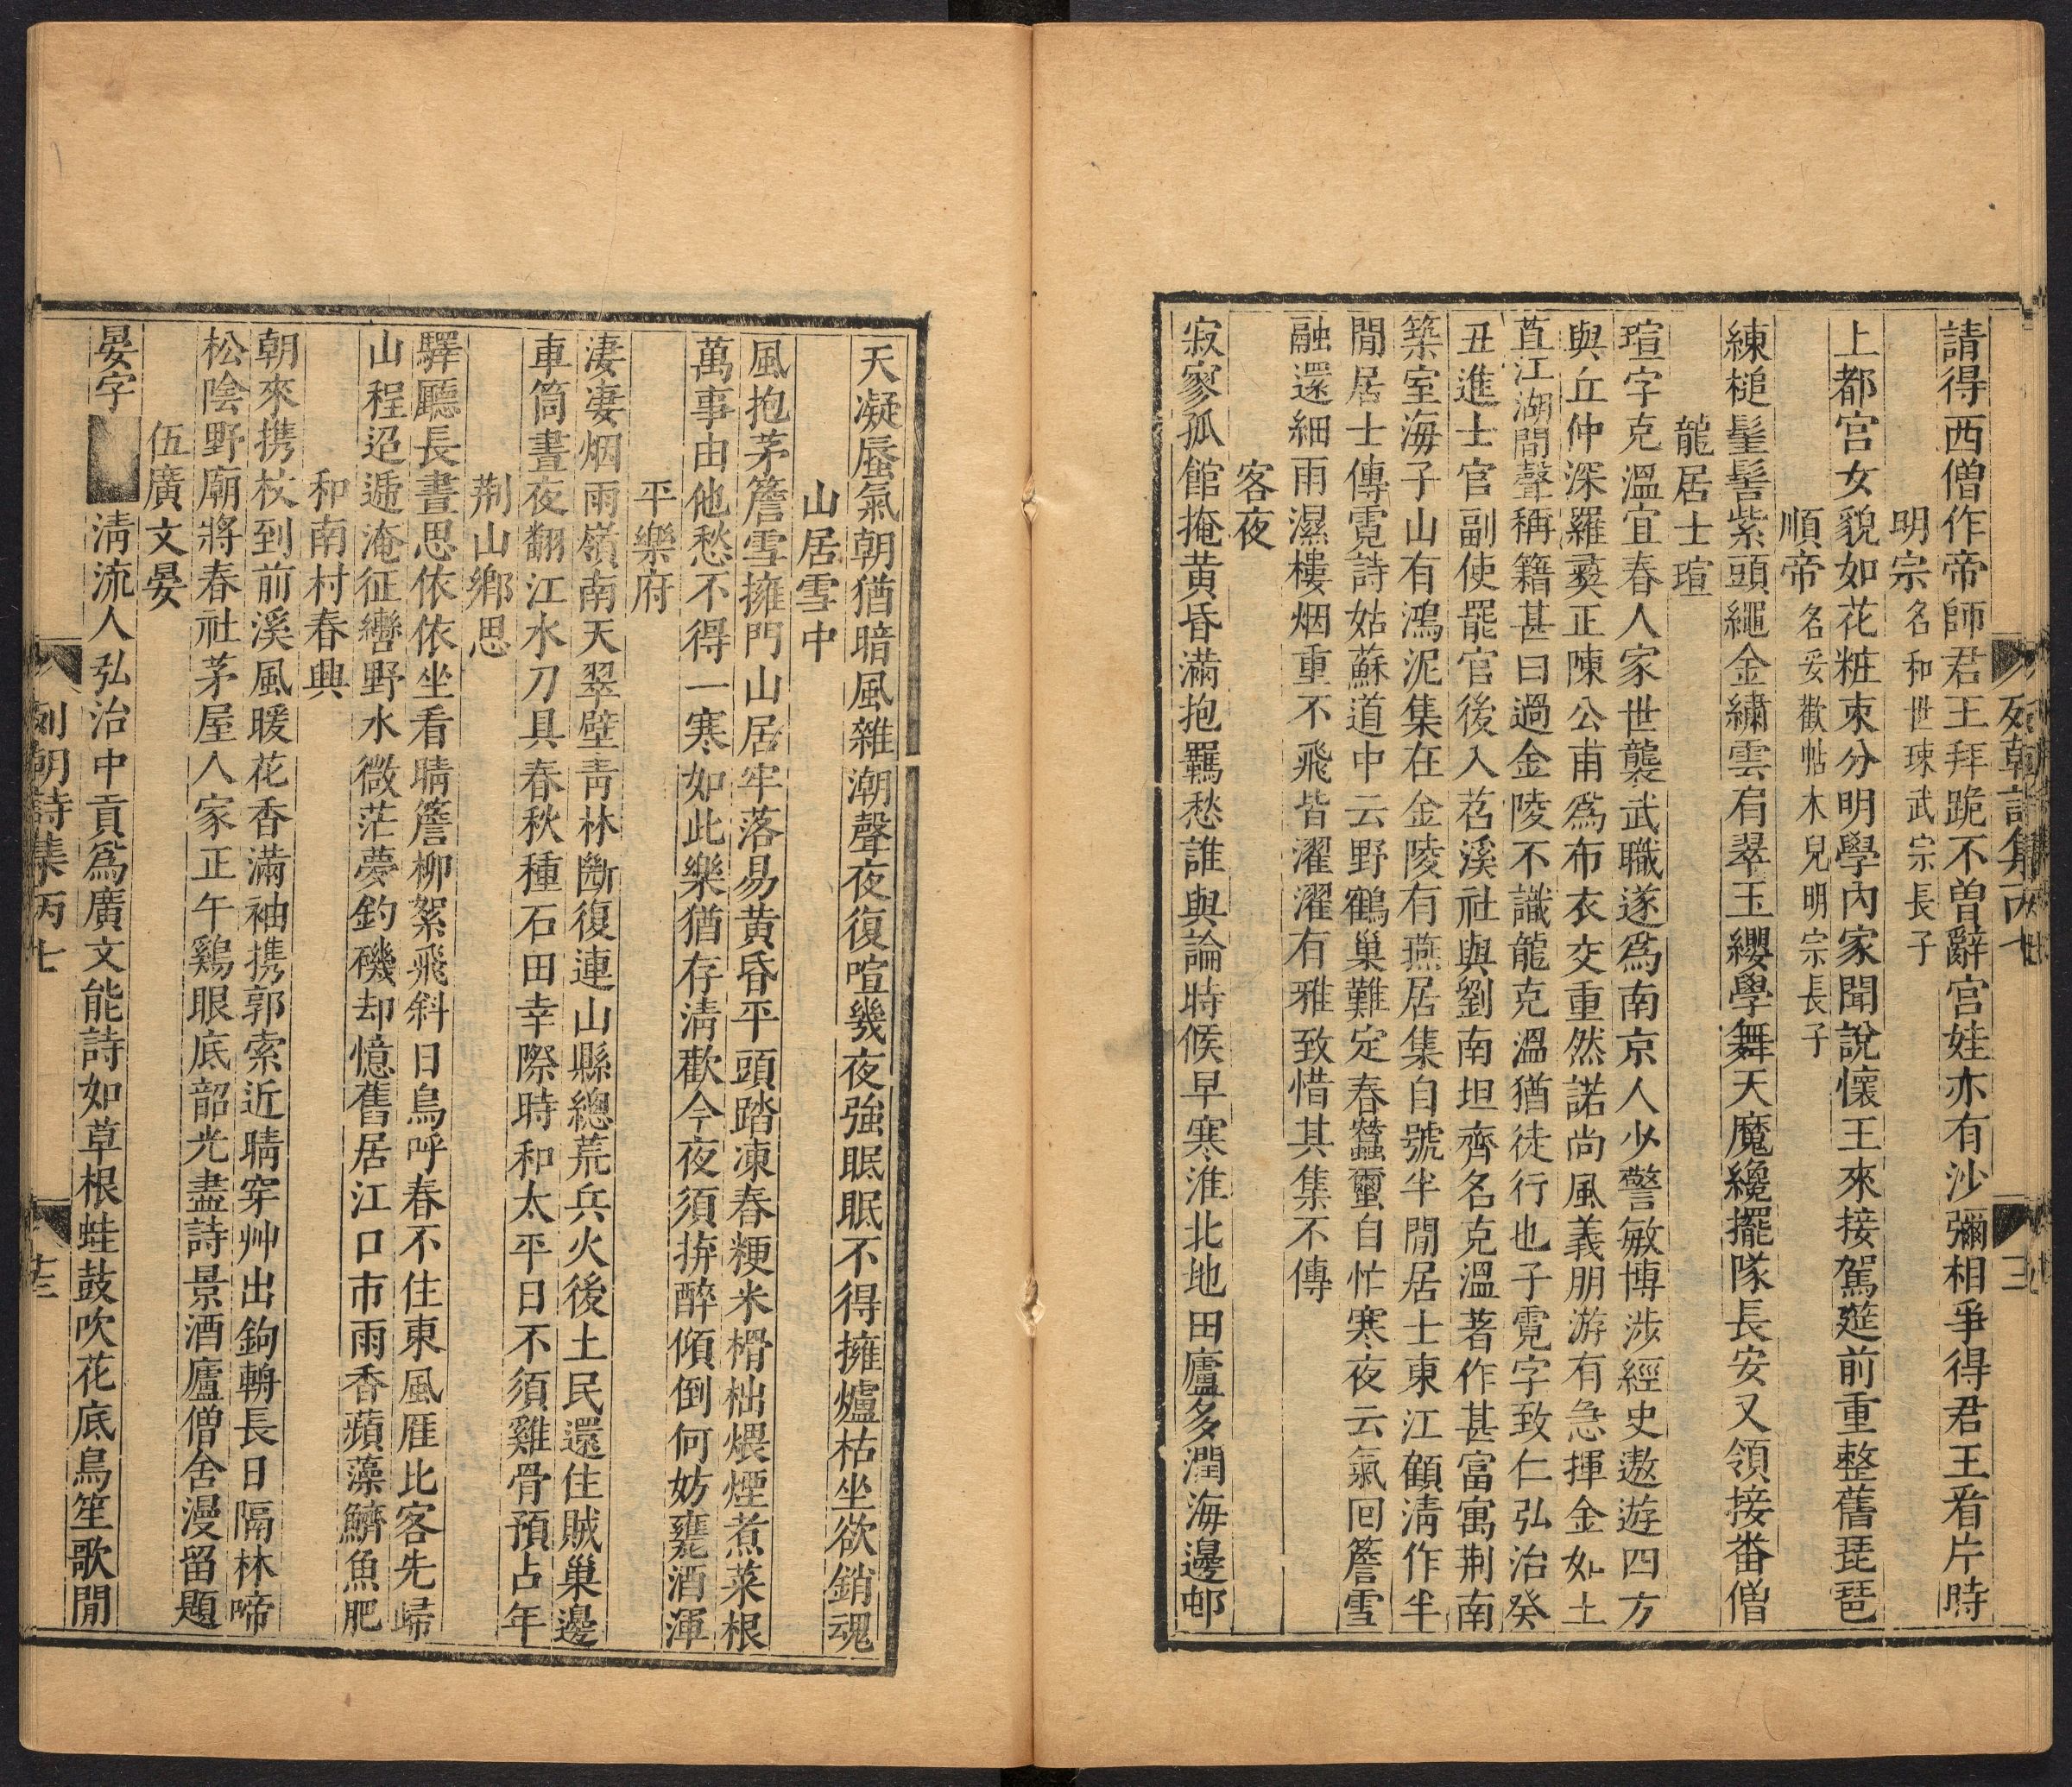 列朝詩集丙七
請得西僧作帝師君王拜跪不曾辭宮娃亦有沙彌相爭得君王看片時
明宗名和世㻋武宗長子
上都宮女貌如花粧束分明學內家聞說懷王來接駕筵前重整舊琵琶
順帝名妥歡帖木兒明宗長子
練槌髽髻紫頭繩金繡雲肩翠玉纓學舞天魔纔擺隊長安又領接番僧
龍居士瑄
瑄字克溫宜春人家世襲武職遂爲南京人少警敏博涉經史遨遊四方
與丘仲深羅彛正陳公甫爲布衣交重然諾尚風義朋游有急揮金如土
苴江湖間聲稱籍甚曰過金陵不識龍克溫猶徒行也子霓字致仁弘治癸
丑進士官副使罷官後入苕溪社與劉南坦齊名克溫著作甚富寓荆南
築室海子山有鴻泥集在金陵有燕居集自號半閒居士東江顧清作半
閒居士傳霓詩姑蘇道中云野鶴巢難定春蠶蠒自忙寒夜云氣回簷雪
融還細雨濕樓烟重不飛皆濯濯有雅致惜其集不傳
客夜
寂寥孤館掩黃昏滿抱羈愁誰與論時候早寒淮北地田廬多潤海邊邨
天凝蜃氣朝猶暗風雜潮聲夜復喧幾夜強眠眠不得擁爐枯坐欲銷魂
山居雪中
風抱茅簷雪擁門山居牢落易黃昏平頭踏凍春粳米榾柮煨煙煮菜根
萬事由他愁不得一寒如此樂猶存清歡今夜須拚醉傾倒何妨甕酒渾
平樂府
淒淒烟雨嶺南天翠壁青林斷復連山縣總荒兵火後土民還住賊巢邊
車筒晝夜翻江水刀具春秋種石田幸際時和太平日不須雞骨預占年
荆山鄉思
驛廳長晝思依依坐看晴簷柳絮飛斜日鳥呼春不住東風雁比客先歸
山程迢遞淹征轡野水微茫夢釣磯却憶舊居江口市雨香蘋藻鱭魚肥
和南村春興
朝來携杖到前溪風暖花香滿袖携郭索近晴穿艸出鉤輈長日隔林啼
松陰野廟將春社茅屋人家正午鷄眼底韶光盡詩景酒廬僧舍漫留題
伍廣文晏
晏字清流人弘治中貢爲廣文能詩如草根蛙鼓吹花底鳥笙歌閒
列朝詩集丙七